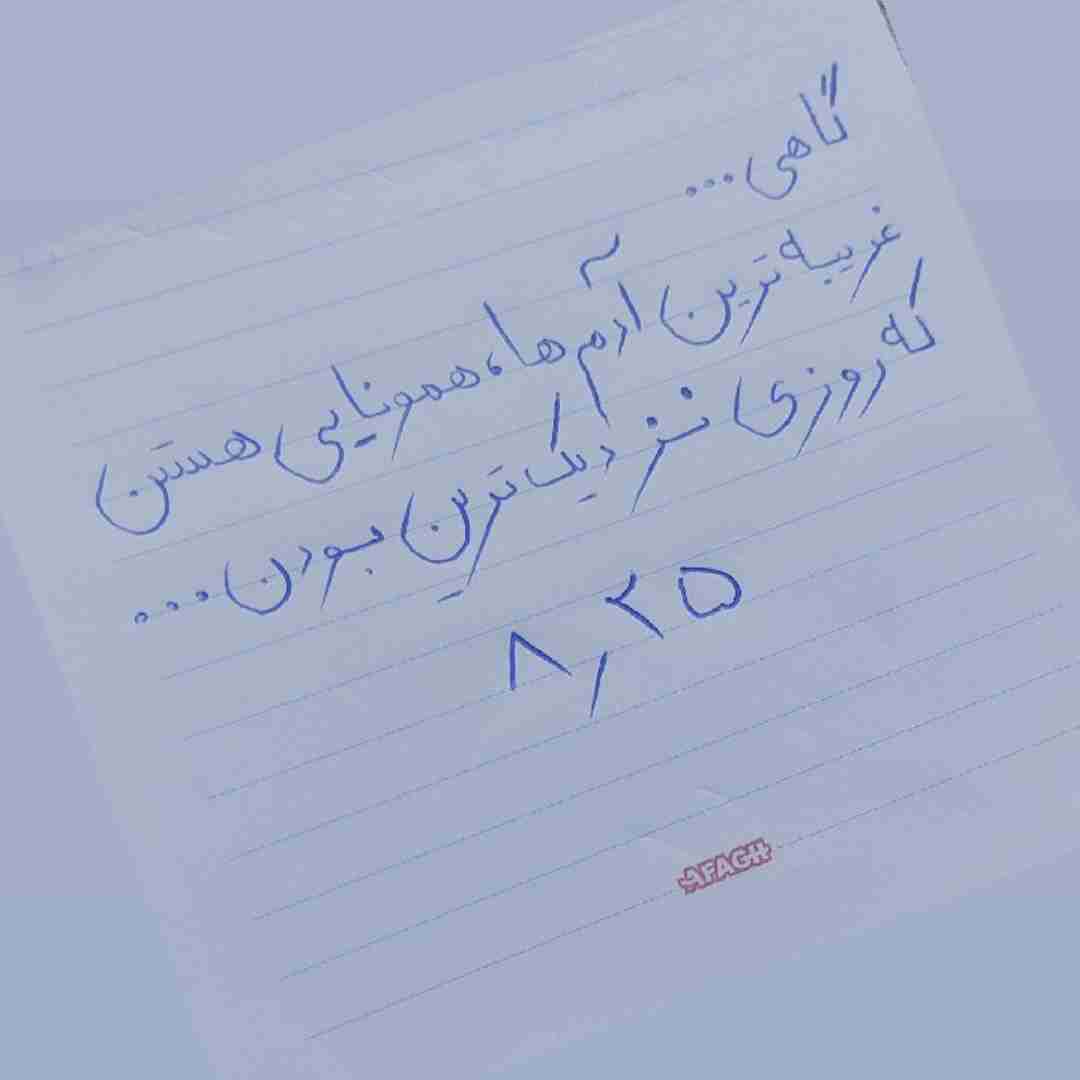 گاهی...
غریبه ترین آدم ها، همونایی هستن
که روزی نزدیک ترین بودن...
۸٫۲۵
AFAGH